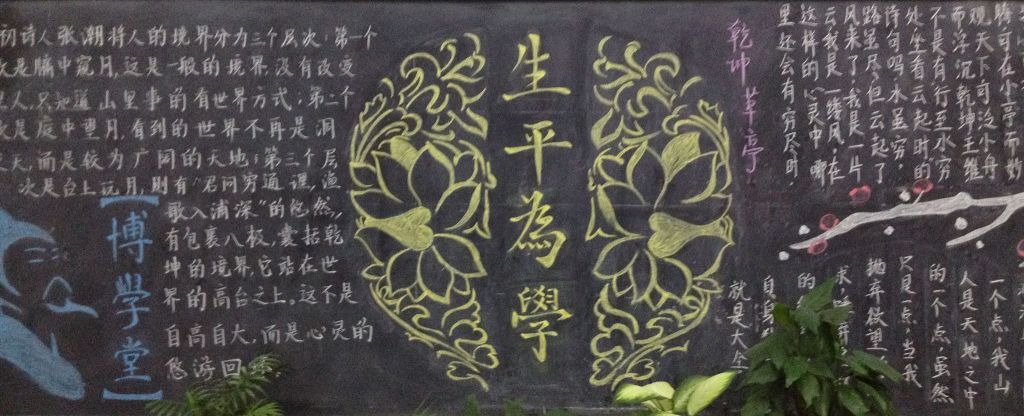 初诗人张潮将人的境界分为三个层次:第一个
次是牖中窥月,这是一般的境界,没有改变
人,只知道山里事的有世界方式;第二个
次是庭中望月,看到的世界不再是洞
天,而是较为广阔的天地;第三个层
次是台上玩月,则有“君问穷通理,渔
歌入浦深”的悠然,
有包裹八极,囊括乾
坤的境界,它站在世
界的高台之上。这不是
自高自大,而是心灵的
悠游回环
【博学堂】
生平為學
乾坤草亭
观天下,可泛小舟
而浮沉乾坤。王维
不是有“行至水穷
处,坐看云起时”的
诗句吗?水虽穷,
路虽尽,但云起了,
风来了,我是一片
云,我是一缕风,在
这样的心灵中,哪
里还会有穷尽时。
一个点,我山
人是天地之中
的一个点,虽然
只是一点,当我
抛弃欲望
就是大全